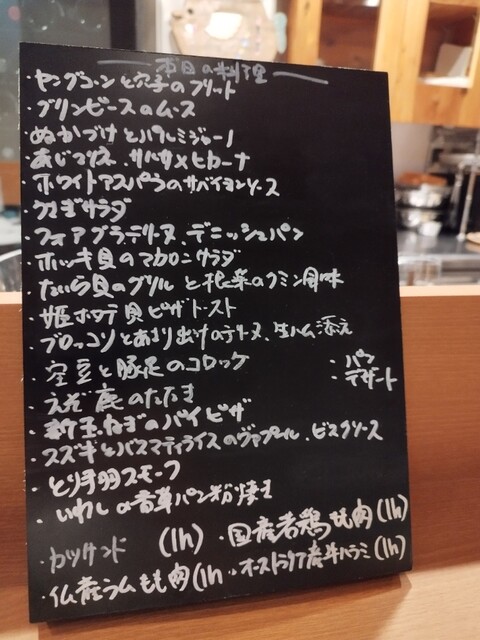 本日の料理
・ヤングコーンと穴子のフリット
・グリンピースのムース
・ぬかづけとパルミジャーノ
・あじマリネ、サルサメヒカーナ
・ホワイトアスパラのサバイヨンソース
・うさぎサラダ
・フォアグラテリーヌ、デニッシュパン
・ホッキ貝のマカロニサラダ
・たいら貝のグリルと根菜のクミン風味
・姫ホタテ貝ピザトースト
・ブロッコリとあまり出けのテリーヌ、生ハム添え
・空豆と豚足のコロッケ
・パン
・デザート
・えぞ鹿のたたき
・新玉ねぎのパイピザ
・スズキとバスマティライスのヴァプール、ビスクソース
・とり手羽スモーク
・いわしの香草パン粉焼き
・カツサンド (1h)
・国産若鶏もも肉(1h)
・仏産ラムもも肉(1h
・オーストラリア産牛ハラミ(1h)